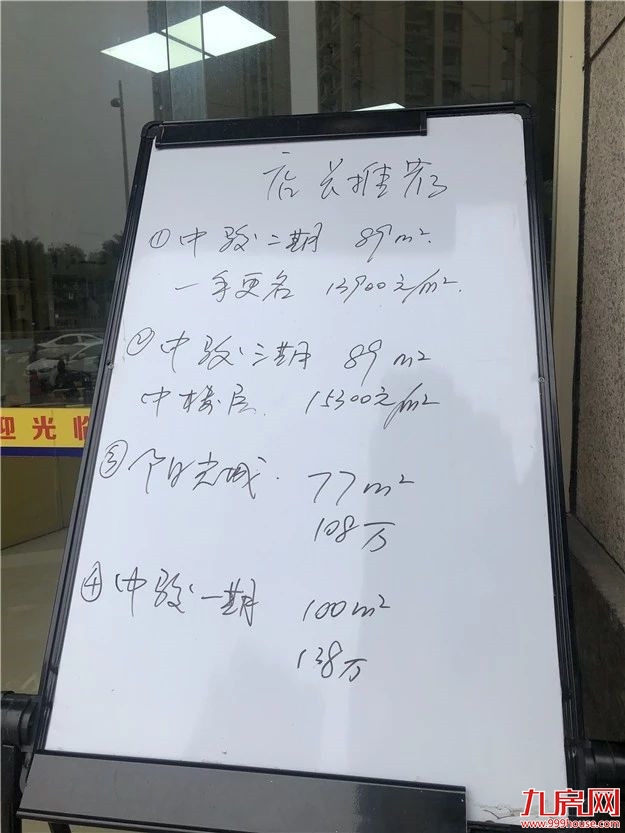 店长推荐
①中骏二期 89m²
一手更名 13900元/m².
②中骏三期 89m²
中楼层 15300元/m²
③今日光城 77m²
108万
④中骏一期 100m²
138万
迎光临
九房网
www.999house.com